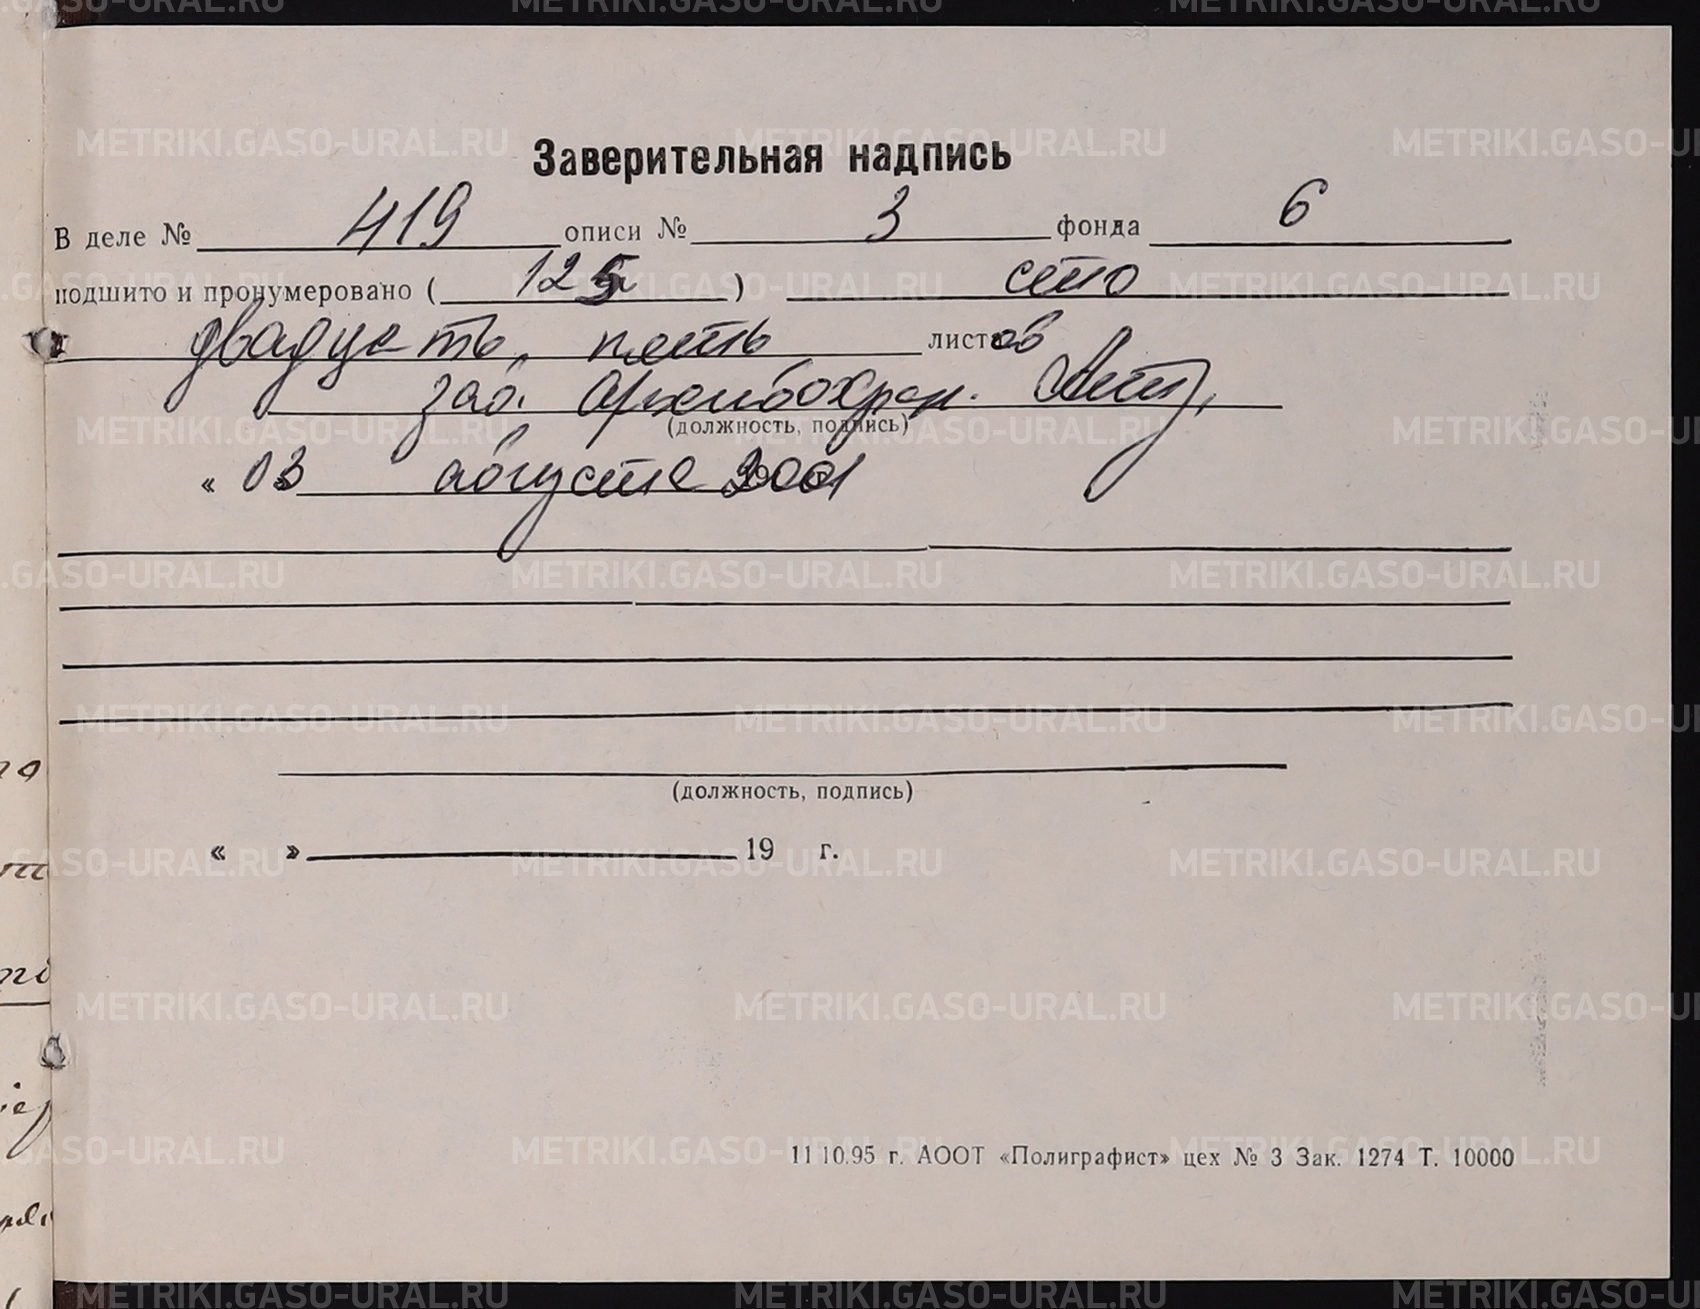 Заверительная надпись
В деле № 419 описи № 3 фонда 6
подшито и пронумеровано ( 125 ) сто
двадцать пять листов
зав. архивохран.
(должность, подпись)
« 03 августа 2001
(должность, подпись)
« » 19 г.
11 10.95 г. АООТ «Полиграфист» цех № 3 Зак. 1274 Т. 10000
METRIKI.GASO-URAL.RU